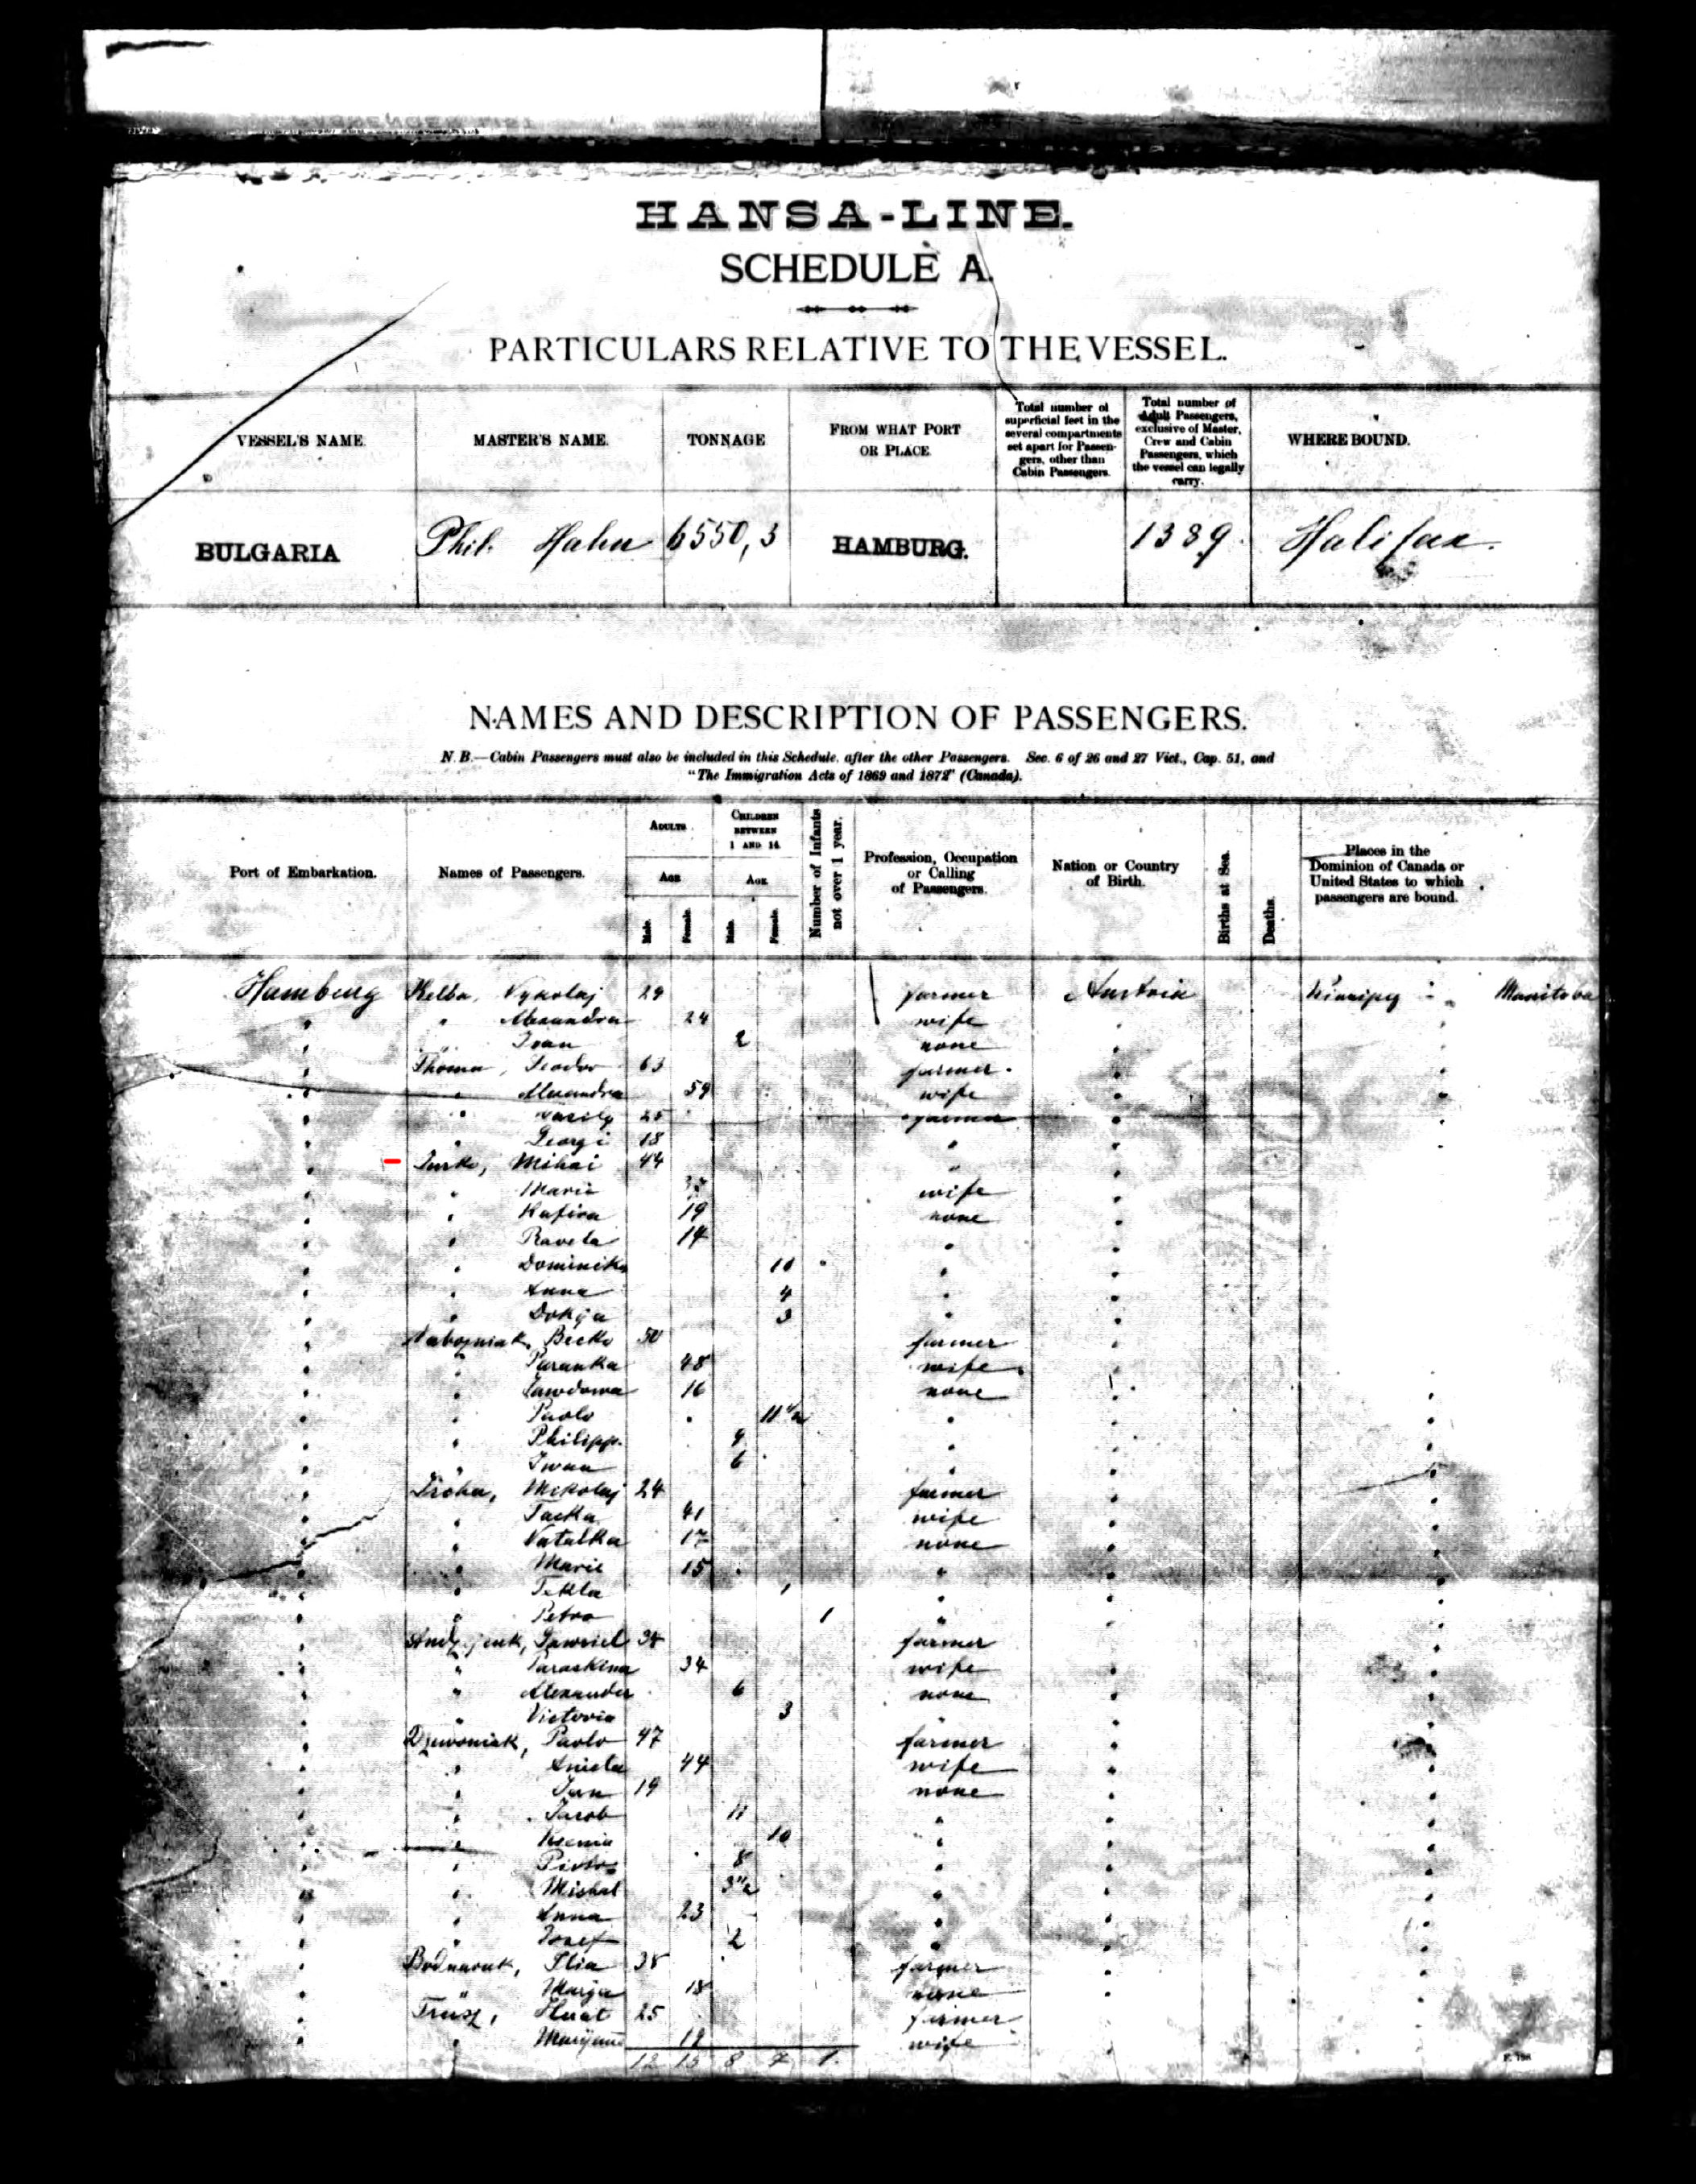 HANSA-LINE.
SCHEDULE A.
PARTICULARS RELATIVE TO THE VESSEL.
VESSEL'S NAME. MASTER'S NAME. TONNAGE FROM WHAT PORT OR PLACE Total number of superficial feet in the several compartments set apart for Passengers, other than Cabin Passengers. Total number of Adult Passengers, exclusive of Master, Crew and Cabin Passengers, which the vessel can legally carry. WHERE BOUND.
BULGARIA Phil. Hahn 6550,3 HAMBURG. 1389. Halifax.
NAMES AND DESCRIPTION OF PASSENGERS.
N. B.—Cabin Passengers must also be included in this Schedule, after the other Passengers. Sec. 6 of 26 and 27 Vict., Cap. 51, and
"The Immigration Acts of 1869 and 1872" (Canada).
Port of Embarkation. Names of Passengers. ADULTS CHILDREN BETWEEN 1 AND 14. Number of Infants not over 1 year. Profession, Occupation or Calling of Passengers. Nation or Country of Birth. Births at Sea. Deaths. Places in the Dominion of Canada or United States to which passengers are bound.
AGE AGE
Male. Female. Male. Female.
Hamburg Nykolaj 29 farmer Austria Winnipeg Manitoba
" " Alexandra 24 wife "
" " Ivan 2 none "
" Thoma, Teodor 63 farmer. "
" " Alexandra 59 wife "
" " Vasily 25 farmer "
" " Georgi 18 " "
" Mihai 44 " "
" " Maria wife "
" " 19 none "
" " 14 " "
" " Dominika 10 " "
" " Anna 4 " "
" " Dokija 3 " "
" 50 farmer "
" " Paranka 48 wife "
" " 16 none "
" " Pavlo 11 1/2 " "
" " Philipp. 9 " "
" " Iwan 6 " "
" Mikolaj 24 farmer "
" " 41 wife "
" " Natalka 17 none "
" " Marie 15 " "
" " Tekla 1 " "
" " Petro 1 " "
" Gawriel 38 farmer "
" " 34 wife "
" " Alexander 6 none "
" " Victoria 3 " "
" Dzwoniak, Pavlo 47 farmer "
" " Anieta 44 wife "
" " Jan 19 none "
" " Jacob 11 " "
" " Ksenia 10 " "
" " Piotr 8 " "
" " Michal 3 1/2 " "
" " Anna 23 " "
" " Josef 2 " "
" Bodnaruk, Ilia 38 farmer "
" " Marija 18 none "
" 25 farmer "
" " 19 wife
12 15 8 7 1.